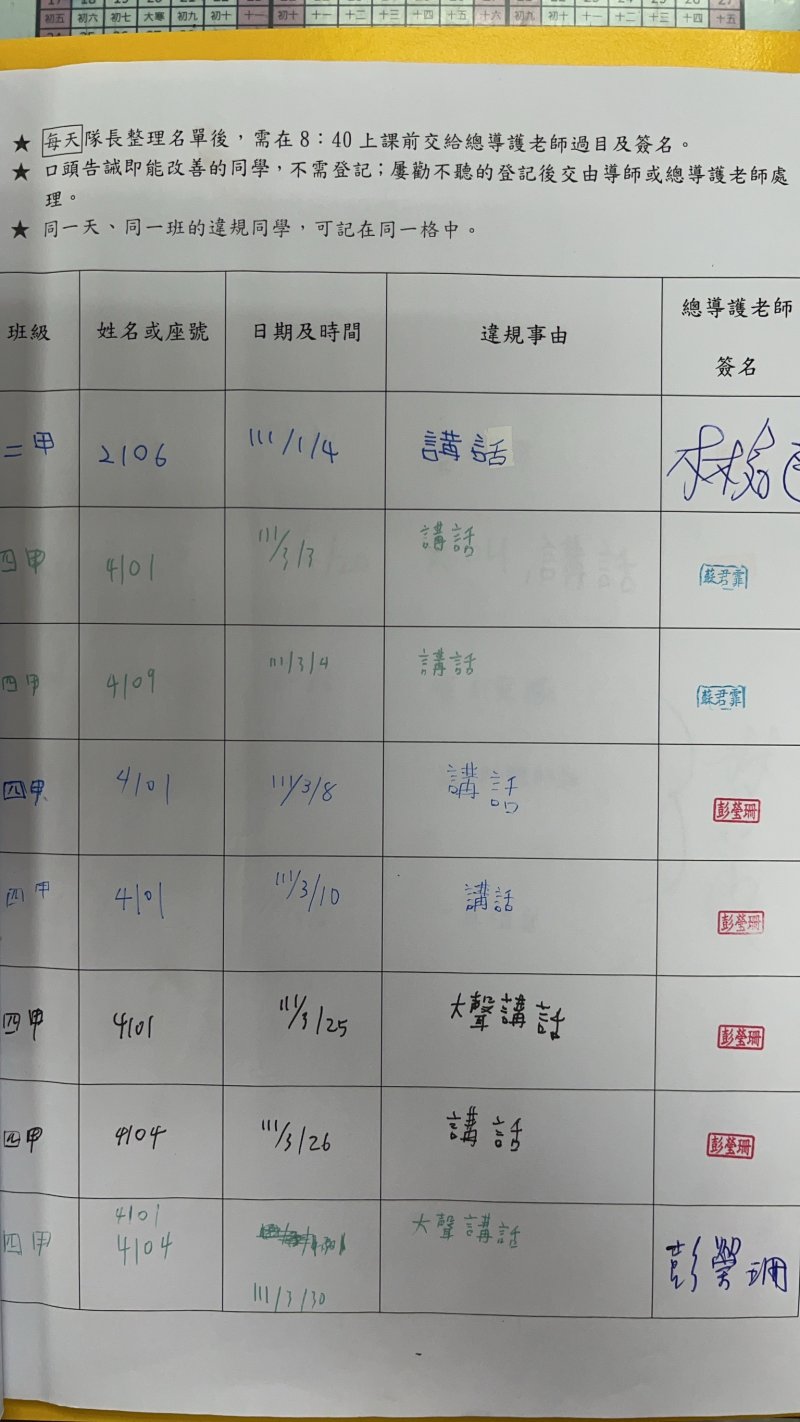 初五 初六 初七 大寒 初九 初十 十一 初十 十一 十二 十三 十四 十五 十六 初九 初十 十一 十二 十三 十四 十五
★ 每天隊長整理名單後，需在8：40上課前交給總導護老師過目及簽名。
★ 口頭告誡即能改善的同學，不需登記；屢勸不聽的登記後交由導師或總導護老師處
理。
★ 同一天、同一班的違規同學，可記在同一格中。
班級 姓名或座號 日期及時間 違規事由 總導護老師
簽名
二甲 2106 111/1/4 講話
四甲 4101 111/3/3 講話 蘇君霏
四甲 4109 111/3/4 講話 蘇君霏
四甲 4101 111/3/8 講話 彭瑩珊
四甲 4101 111/3/10 講話 彭瑩珊
四甲 4101 111/3/25 大聲講話 彭瑩珊
四甲 4104 111/3/26 講話 彭瑩珊
四甲 4101 大聲講話 彭瑩珊
4104
111/3/30